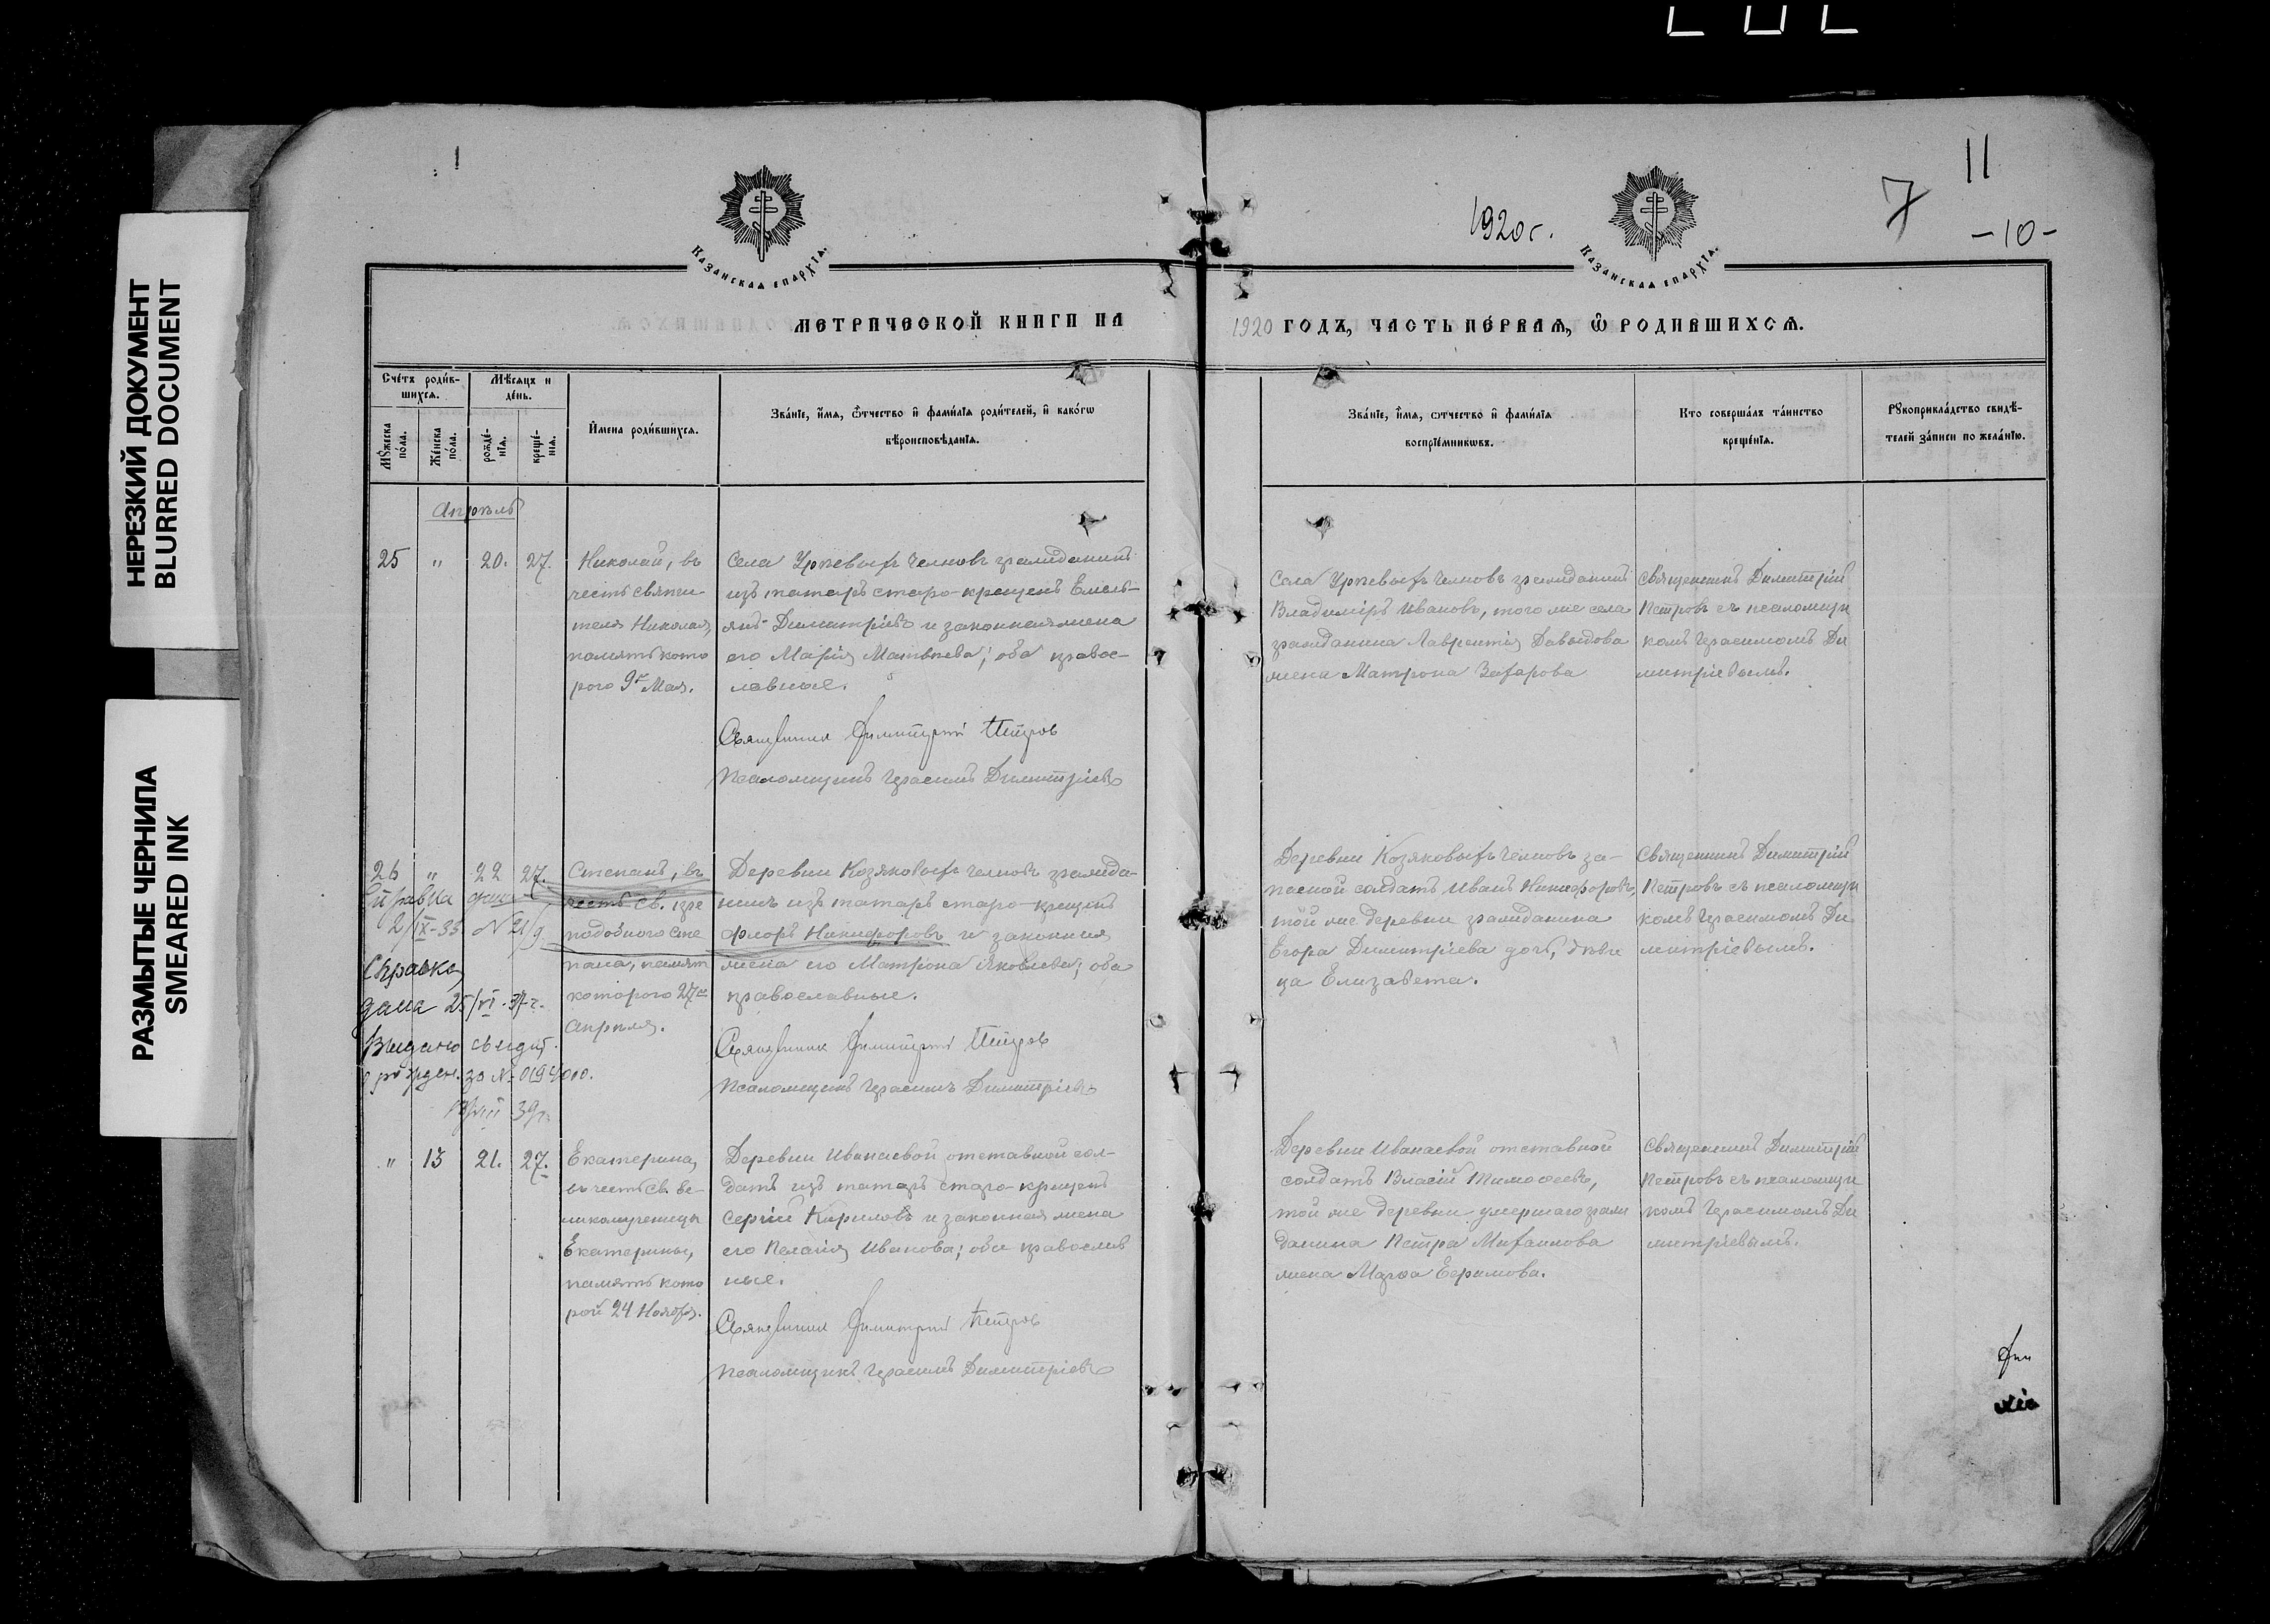 НЕРЕЗКИЙ ДОКУМЕНТ
BLURRED DOCUMENT
РАЗМЫТЫЕ ЧЕРНИЛА
SMEARED INK
1920 г.
7
11
-10-
Казанская епархїа.
Казанская епархїа.
МЕТРИЧЕСКОЙ КНИГИ НА
1920 ГОДЪ, ЧАСТЬ ПЕ́РВАЯ, Ѡ РОДИВШИХСЯ.
Сче́тъ роди́в-
шихся.
Мѣ́сяцъ и
де́нь.
Мꙋ́жеска
по́ла.
Же́нска
по́ла.
рожде́-
нїя.
креще́-
нїя.
И́мена роди́вшихся.
Зва́нїе, и́мя, ѻ́тчество и҆ фами́лїя роди́телей, и҆ како́гѡ
вѣроисповѣ́данїя.
Зва́нїе, и́мя, ѻтчество и҆ фами́лїя
воспрїе́мникѡвъ.
Кто̀ соверша́лъ та́инство
креще́нїя.
Рꙋкоприкла́дство свидѣ́-
телей за́писи по жела́нїю.
Апрѣль
25 " 20. 27.
Николай, въ
честь святи
теля Николая,
память кото
рого 9го Мая.
Села Урѣевыхъ Челновъ гражданинъ
изъ татаръ старо-крещенъ Емель-
янъ Димитріевъ и законная жена
его Марія Матвѣева; оба правос-
лавные.
Священник Димитрий Петров
Псаломщикъ Герасимъ Димитріевъ
Села Урѣевыхъ Челновъ гражданинъ
Владиміръ Ивановъ, того же села
гражданина Лаврентія Давыдова
жена Матрона Захарова
Священникъ Димитрій
Петровъ съ псаломщи
комъ Герасимомъ Ди
митріевымъ.
26 " 22 27.
Справка дана
2/IX-35 № 21/9
Справка
дана 25/VI-37 г.
Выдано свидет.
о рожден. за №
VIII 39 г.
Степанъ, въ
честь св. пре
подобного Сте
пана, память
которого 27го
Апрѣля.
Деревни Козяковыхъ Челновъ гражда-
нинъ изъ татаръ старо-крещенъ
Флоръ Никифоровъ и законная
жена его Матрона Яковлева; оба
православные.
Священник Димитрий Петров
Псаломщикъ Герасимъ Димитріевъ
Деревни Козяковыхъ Челновъ за-
пасной солдатъ Иванъ Никифоровъ,
той же деревни гражданина
Егора Димитріева дочь, дѣви
ца Елизавета.
Священникъ Димитрій
Петровъ съ псаломщи
комъ Герасимомъ Ди
митріевымъ.
" 13 21. 27.
Екатерина,
въ честь св. ве-
ликомученицы
Екатерины,
память кото
рой 24 Ноября.
Деревни Иванаевой отставной сол-
датъ изъ татаръ старо-крещенъ
Сергій Кириловъ и законная жена
его Пелагія Иванова; оба православ
ные.
Священник Димитрий Петров
Псаломщикъ Герасимъ Димитріевъ
Деревни Иванаевой отставной
солдатъ Власій Тимофеевъ,
той же деревни умершаго граж
данина Петра Михаилова
жена Марѳа Ефремова.
Священникъ Димитрій
Петровъ съ псаломщи
комъ Герасимомъ Ди
митріевымъ.